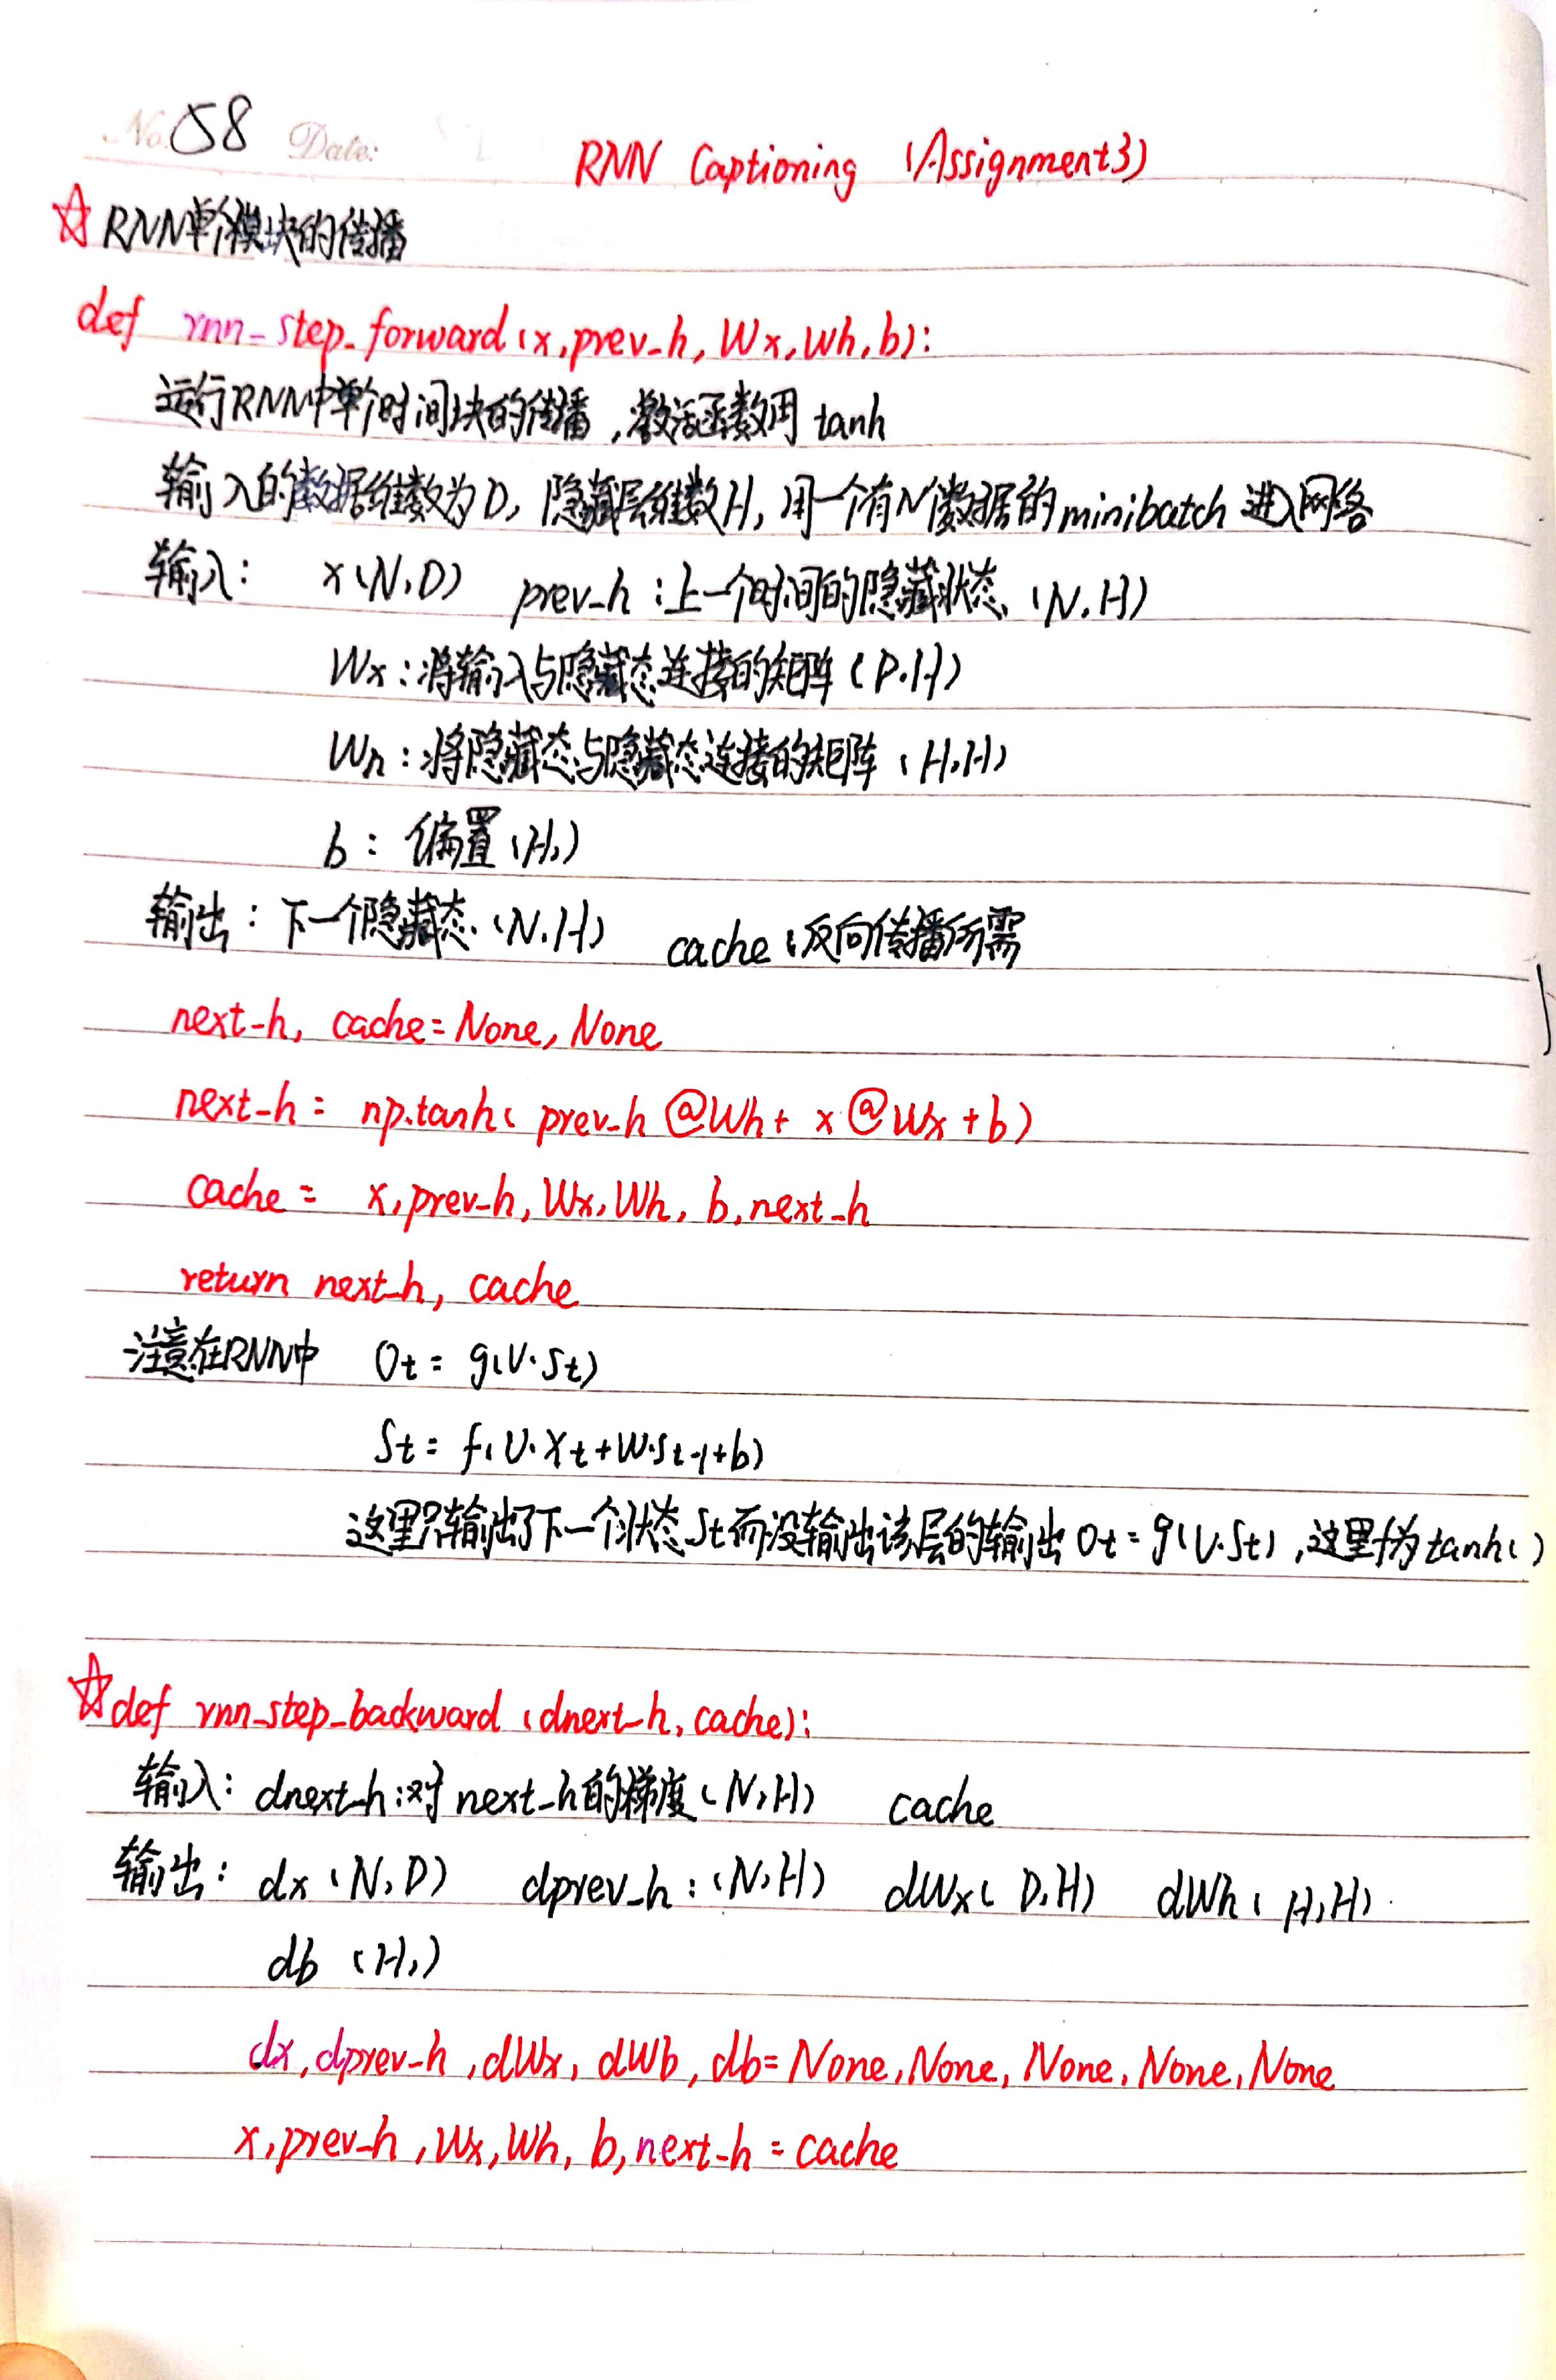 No. 058 Date:
RNN Captioning (Assignment3)
☆ RNN单个模块的传播
def rnn-step-forward(x,prev-h, Wx,Wh,b):
运行RNN中单个时间块的传播,激活函数用 tanh
输入的数据维数为D, 隐藏层维数H, 用一个有N个数据的minibatch 进入网络
输入: x(N,D) prev-h:上一个时间的隐藏状态 (N,H)
Wx:将输入与隐藏态连接的矩阵(D,H)
Wh:将隐藏态与隐藏态连接的矩阵 (H,H)
b: 偏置(H,)
输出: 下一个隐藏态 (N,H) cache:反向传播所需
next-h, cache=None, None
next-h= np.tanh( prev-h @Wh+ x@Wx+b)
cache= x,prev-h,Wx,Wh, b,next-h
return next-h, cache
注意在RNN中 Ot = g(V·St)
St = f(U·Xt+W·St-1+b)
这里只输出了下一个状态St而没输出该层的输出 Ot=g(V·St),这里f为tanh()
☆def rnn-step-backward (dnext-h, cache):
输入: dnext-h:对 next-h的梯度(N,H) cache
输出: dx (N,D) dprev-h:(N,H) dWx( D,H) dWh( H,H)
db (H,)
dx,dprev-h,dWx, dWb, db=None,None, None, None, None
x,prev-h,Wx,Wh, b,next-h=cache